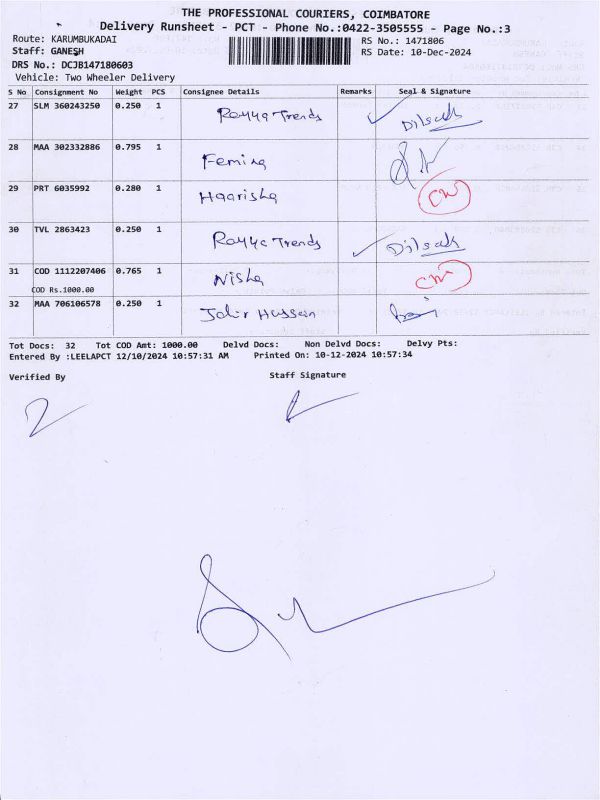 THE PROFESSIONAL COURIERS, COIMBATORE
Delivery Runsheet - PCT - Phone No.:0422-3505555 - Page No.:3
Route: KARUMBUKADAI
RS No.: 1471806
Staff: GANESH
RS Date: 10-Dec-2024
DRS No.: DCJB147180603
Vehicle: Two Wheeler Delivery
S No Consignment No Weight PCS Consignee Details Remarks Seal & Signature
27 SLM 360243250 0.250 1 Rayya Trends Dilsath
28 MAA 302332886 0.795 1 Femina
29 PRT 6035992 0.280 1 Haarisha
30 TVL 2863423 0.250 1 Rayya Trends Dilsath
31 COD 1112207406 0.765 1 Nisha
COD Rs.1000.00
32 MAA 706106578 0.250 1 Jakir Hussain
Tot Docs: 32 Tot COD Amt: 1000.00 Delvd Docs: Non Delvd Docs: Delvy Pts:
Entered By :LEELAPCT 12/10/2024 10:57:31 AM Printed On: 10-12-2024 10:57:34
Verified By Staff Signature